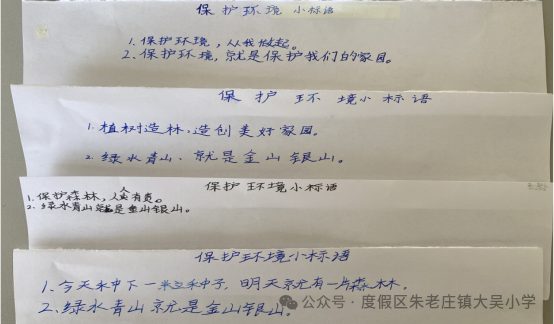 保护环境小标语
1.保护环境,从我做起。
2.保护环境,就是保护我们的家园。
保护环境小标语
1.植树造林,造创美好家园。
2.绿水青山、就是金山银山。
保护环境小标语
1.保护森林,人人有责。
2.绿水青山就是金山银山。
保护环境小标语
1.今天禾中下一粒禾中子,明天就有一片森林。
2.绿水青山就是金山银山。
公众号·度假区朱老庄镇大吴小学